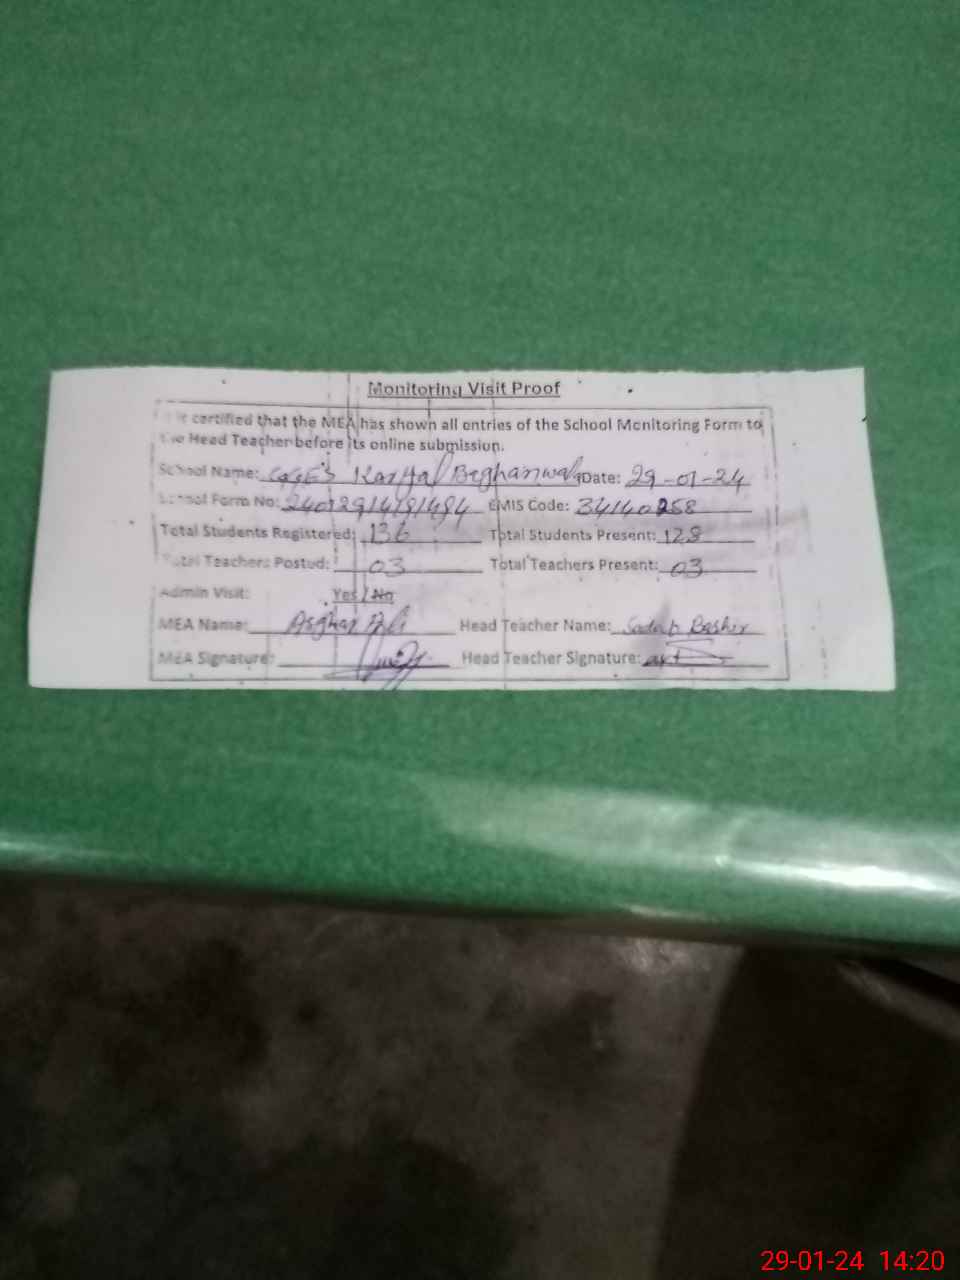 Monitoring Visit Proof
It is certified that the MEA has shown all entries of the School Monitoring Form to
the Head Teacher before its online submission.
School Name: GGES Beghanwala Date: 29-01-24
School Form No: EMIS Code: 34140258
Total Students Registered: 136 Total Students Present: 128
Total Teachers Posted: 03 Total Teachers Present: 03
Admin Visit: Yes / No
MEA Name: Asghar Ali Head Teacher Name: Bashir
MEA Signature: Head Teacher Signature:
29-01-24 14:20